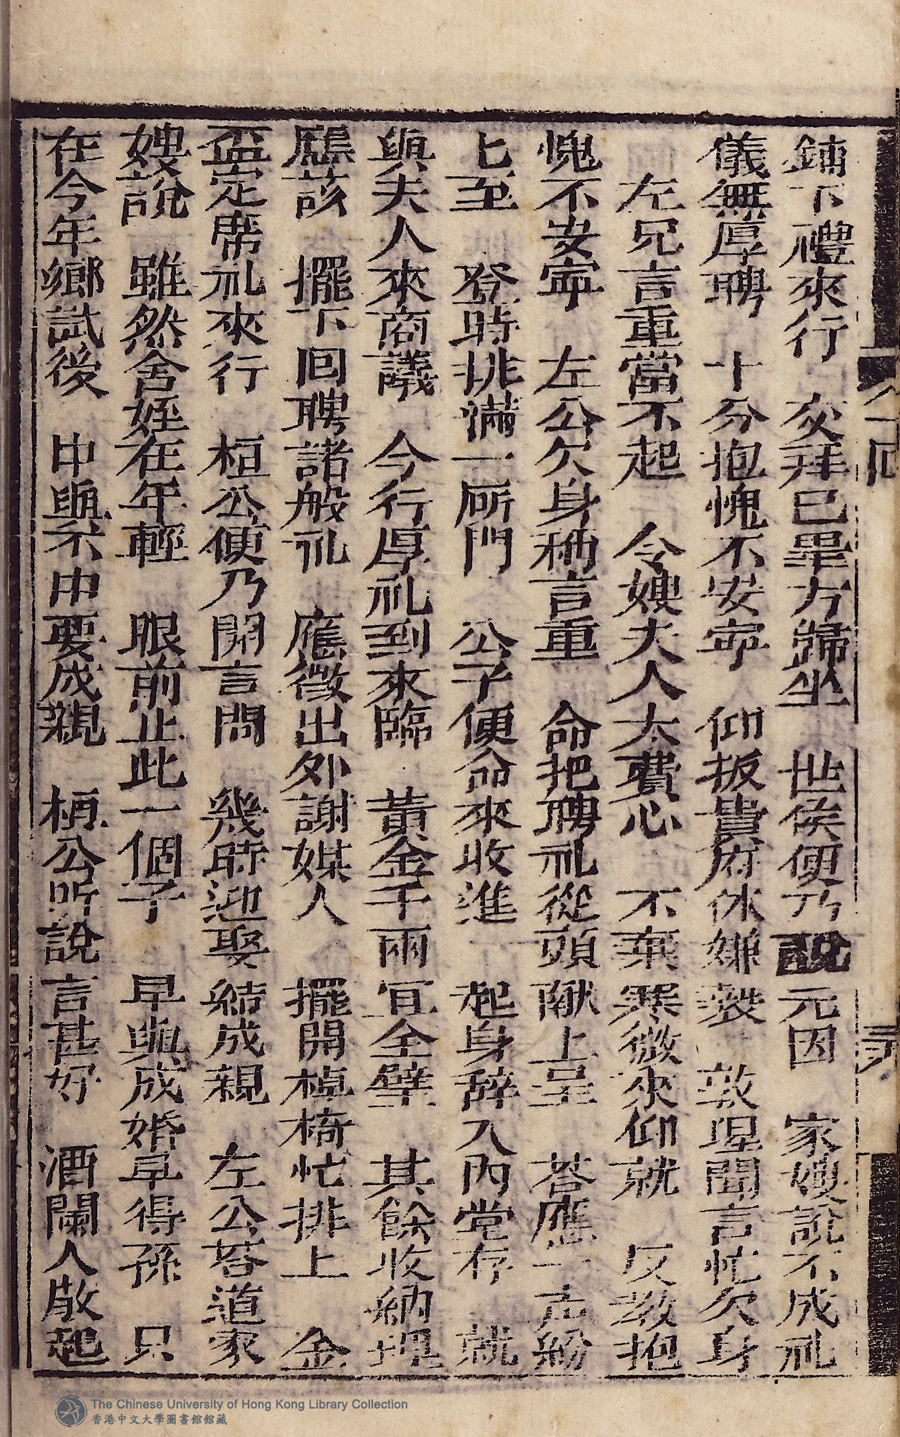 鋪下禮來行　交拜已畢方歸坐　世侯便乃說元因　家嫂說不成礼
儀無厚聘　十分抱愧不安寧　仰扳貴府休嫌䙝　敦墀聞言忙欠身
左兄言重當不起　令嫂夫人太費心　不棄寒微來仰就　反教抱
愧不安寧　左公欠身称言重　命把聘礼從頭献上呈　荅應一声紛
七至　登時排滿一所門　公子便命來收進　起身辞入內堂存　就
與夫人來商議　今行厚礼到來臨　黃金千兩宜全璧　其餘收納理
應該　擺下回聘諸般礼　應徵出外謝媒人　擺開棹椅忙排上　金
盃定席礼來行　桓公便乃開言問　幾時迎娶結成親　左公荅道家
嫂說　雖然舍姪在年輕　眼前止此一個子　早與成婚早得孫　只
在今年鄉試後　中與不中要成親　桓公听說言甚好　酒闌人散起
八回
The Chinese University of Hong Kong Library Collection
香港中文大學圖書館館藏